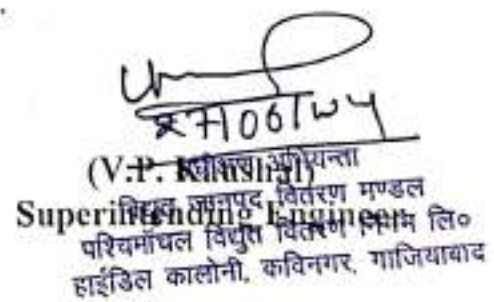 (V.P. Kaushal)
Superintending Engineer
अधीक्षण अभियन्ता
विद्युत जानपद वितरण मण्डल
पश्चिमाँचल विद्युत वितरण निगम लि०
हाईडिल कालोनी, कविनगर, गाजियाबाद